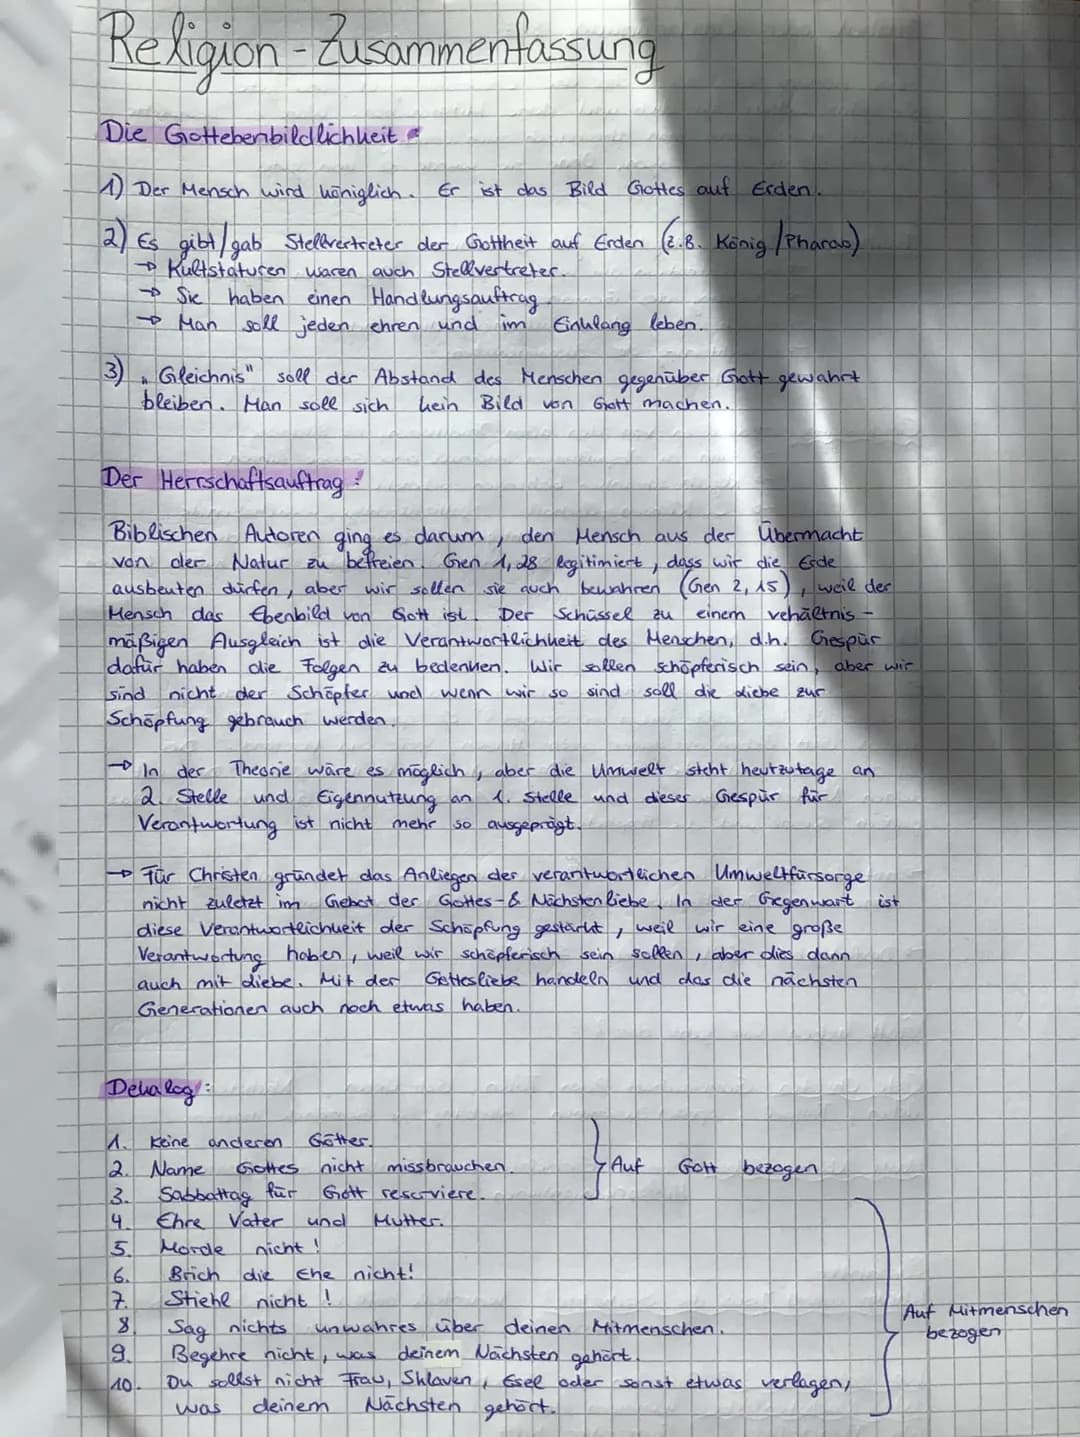 Religion - Zusammenfassung
Die Gottebenbildlichkeit:
1) Der Mensch wird königlich. Er ist das Bild Gottes auf Erden.
2) Es gibt/gab Stellvertreter der Gottheit auf Erden (z.B. König/Pharao)
→ Kultstaturen waren auch Stellvertreter.
→ Sie haben einen Handlungsauftrag.
→ Man soll jeden ehren und im Einklang leben.
3) „Gleichnis" soll der Abstand des Menschen gegenüber Gott gewahrt
bleiben. Man soll sich kein Bild von Gott machen.
Der Herrschaftsauftrag:
Biblischen Autoren ging es darum, den Mensch aus der Übermacht
von der Natur zu befreien. Gen 1,28 legitimiert, dass wir die Erde
ausbeuten dürfen, aber wir sollen sie auch bewahren (Gen 2,15), weil der
Mensch das Ebenbild von Gott ist. Der Schüssel zu einem vehältnis-
mäßigen Ausgleich ist die Verantwortlichkeit des Menschen, d.h. Gespür
dafür haben die Folgen zu bedenken. Wir sollen schöpferisch sein, aber wir
sind nicht der Schöpfer und wenn wir so sind soll die Liebe zur
Schöpfung gebrauch werden.
→ In der Theorie wäre es möglich, aber die Umwelt steht heutzutage an
2. Stelle und Eigennutzung an 1. Stelle und dieser Gespür für
Verantwortung ist nicht mehr so ausgeprägt.
→ Für Christen gründet das Anliegen der verantwortlichen Umweltfürsorge
nicht zuletzt im Gebot der Gottes-& Nächstenliebe. In der Gegenwart ist
diese Verantwortlichkeit der Schöpfung gestärkt, weil wir eine große
Verantwortung haben, weil wir schöpferisch sein sollen, aber dies dann
auch mit Liebe. Mit der Gottesliebe handeln und das die nächsten
Generationen auch noch etwas haben.
Dekalog:
1. Keine anderen Götter.
2. Name Gottes nicht missbrauchen.
3. Sabbattag für Gott reserviere.
Auf Gott bezogen
4. Ehre Vater und Mutter.
5. Morde nicht!
6. Brich die Ehe nicht!
7. Stiehl nicht!
8. Sag nichts unwahres über deinen Mitmenschen.
9. Begehre nicht, was deinem Nächsten gehört.
10. Du sollst nicht Frau, Sklaven, Esel oder sonst etwas verlagen,
was deinem Nächsten gehört.
Auf Mitmenschen
bezogen